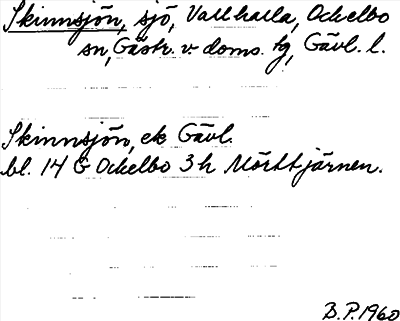 Skinnsjön, sjö, Vallhalla, Ockelbo
sn, Gästr. v. doms. tg, Gävl. l.
Skinnsjön, ek Gävl.
bl. 14 G Ockelbo 3 h Mörttjärnen.
B.P. 1960